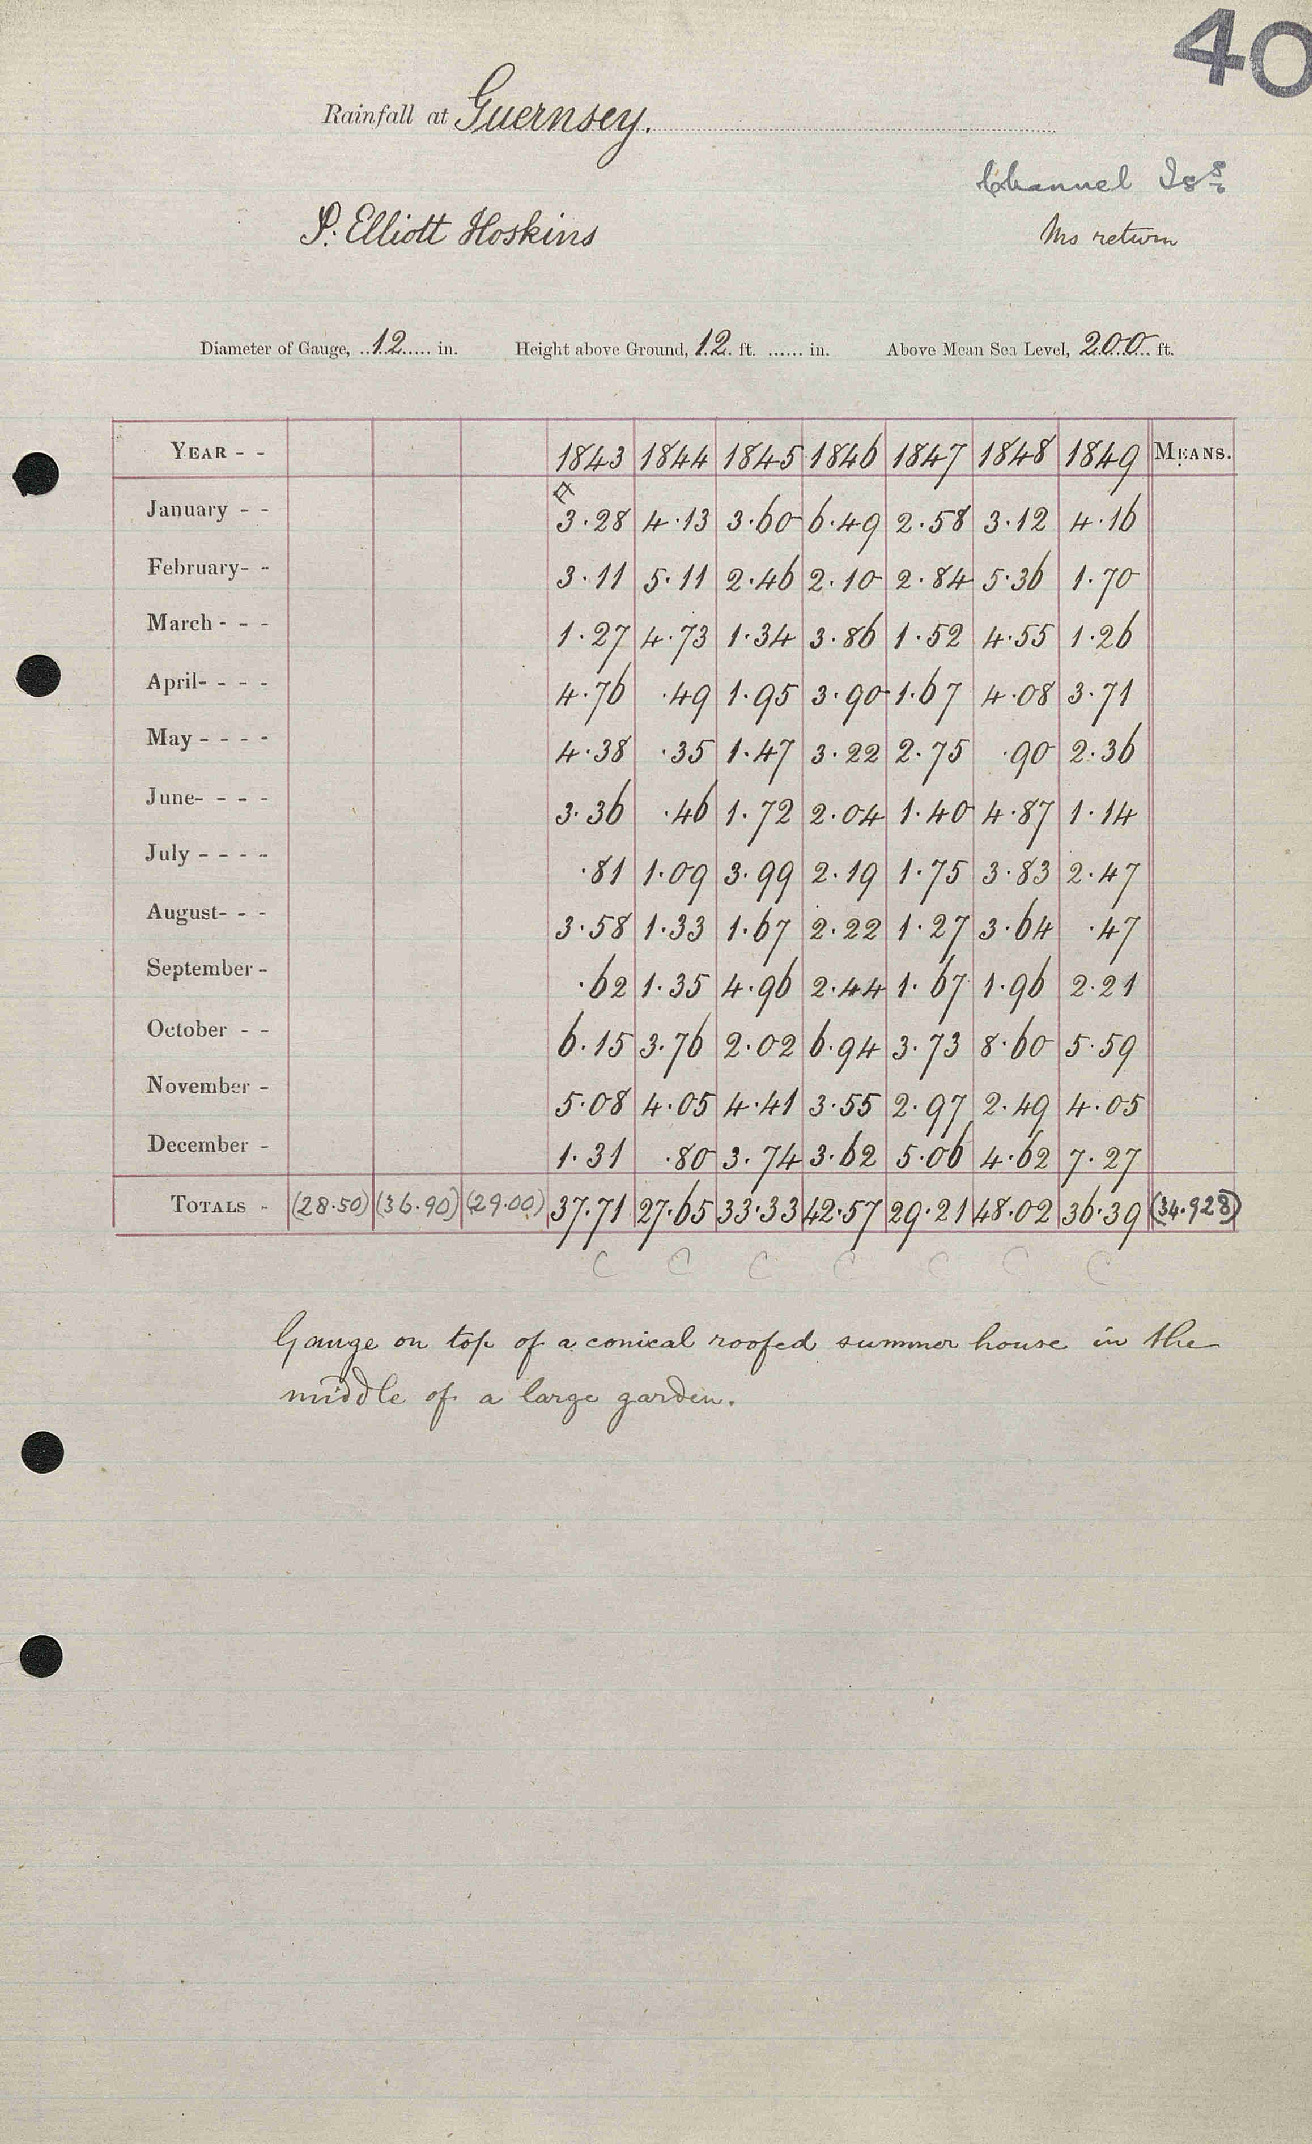 40
Rainfall at Guernsey.
Channel Is.s
S. Elliott Hoskins Ms return
Diameter of Gauge, 12 in. Height above Ground, 12 ft. ...... in. Above Mean Sea Level, 200 ft.
YEAR - - 1843 1844 1845 1846 1847 1848 1849 MEANS.
January - - 3.28 4.13 3.60 6.49 2.58 3.12 4.16
February- - 3.11 5.11 2.46 2.10 2.84 5.36 1.70
March - - - 1.27 4.73 1.34 3.86 1.52 4.55 1.26
April- - - - 4.76 .49 1.95 3.90 1.67 4.08 3.71
May - - - - 4.38 .35 1.47 3.22 2.75 .90 2.36
June- - - - 3.36 .46 1.72 2.04 1.40 4.87 1.14
July - - - - .81 1.09 3.99 2.19 1.75 3.83 2.47
August- - - 3.58 1.33 1.67 2.22 1.27 3.64 .47
September - .62 1.35 4.96 2.44 1.67 1.96 2.21
October - - 6.15 3.76 2.02 6.94 3.73 8.60 5.59
November - 5.08 4.05 4.41 3.55 2.97 2.49 4.05
December - 1.31 .80 3.74 3.62 5.06 4.62 7.27
TOTALS - (28.50) (36.90) (29.00) 37.71 27.65 33.33 42.57 29.21 48.02 36.39 (34.928)
C C C C C C C
Gauge on top of a conical roofed summer house in the
middle of a large garden.